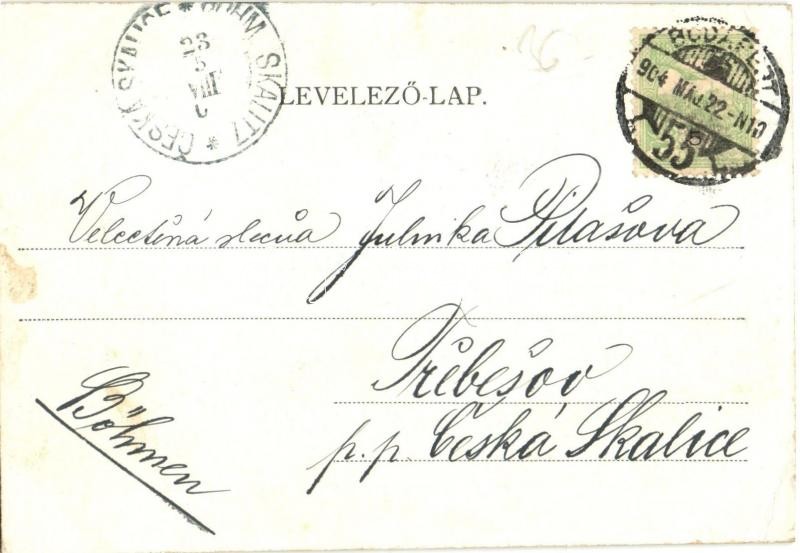 ČESKÁ SKALICE * BÖHM. SKALITZ *
23
5
VIII
26
LEVELEZŐ-LAP.
BUDAPEST
904 MÁJ. 22-N10
55
Velectěná slečna Julinka Pilašova
Třebešov
p. p. Česká Skalice
Böhmen